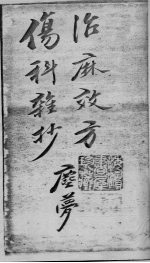 治麻效方
傷科雜抄
塵夢